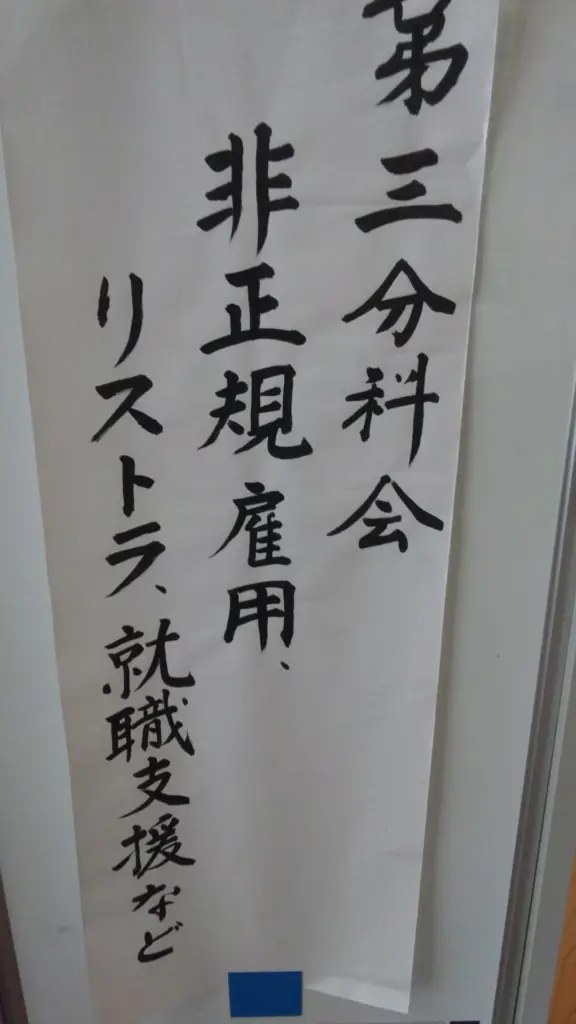 第三分科会
非正規雇用、
リストラ、就職支援など